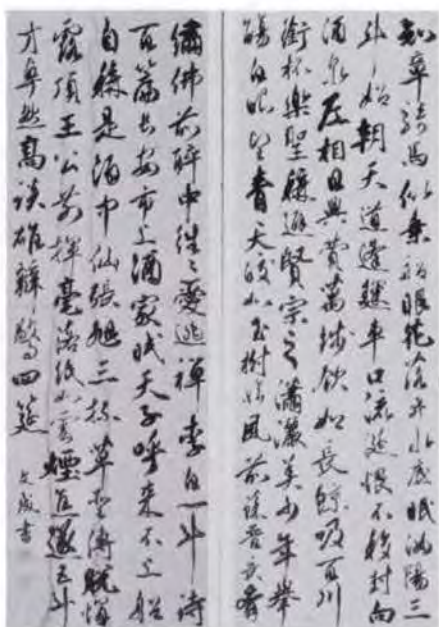 知章騎馬似乘船眼花落井水底眠汝陽三
斗始朝天道逢麴車口流涎恨不移封向
酒泉左相日興費萬錢飲如長鯨吸百川
銜杯樂聖稱避賢宗之瀟灑美少年舉
觴白眼望青天皎如玉樹臨風前蘇晉長齋
繡佛前醉中往々愛逃禪李白一斗詩
百篇長安市上酒家眠天子呼來不上船
自稱是酒中仙張旭三杯草聖傳脫帽
露頂王公前揮毫落紙如雲煙焦遂五斗
方卓然高談雄辯驚四筵 文成書